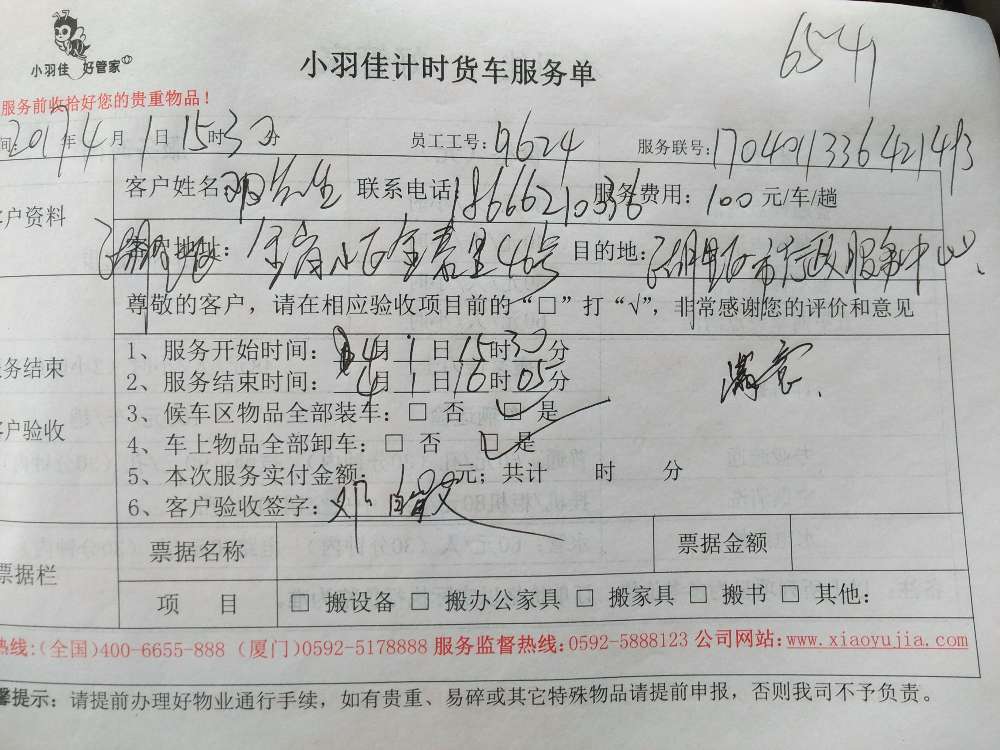 小羽佳 好管家
小羽佳计时货车服务单
6541
服务前收拾好您的贵重物品！
间：2017年4月1日15时30分 员工工号：9624 服务联号：
客户资料 客户姓名 先生 联系电话 18666210336 服务费用：100元/车/趟
地址： 46号 目的地： 市行政服务中心
尊敬的客户，请在相应验收项目前的“□”打“√”，非常感谢您的评价和意见
务结束
客户验收
1、服务开始时间：4月1日15时30分
2、服务结束时间：4月1日16时05分
满意
3、候车区物品全部装车：□ 否 □ 是
4、车上物品全部卸车：□ 否 □ 是
5、本次服务实付金额： 元；共计 时 分
6、客户验收签字：
票据栏 票据名称 票据金额
项 目 □ 搬设备 □ 搬办公家具 □ 搬家具 □ 搬书 □ 其他：
热线：(全国)400-6655-888 (厦门)0592-5178888 服务监督热线：0592-5888123 公司网站：www.xiaoyujia.com
馨提示：请提前办理好物业通行手续，如有贵重、易碎或其它特殊物品请提前申报，否则我司不予负责。